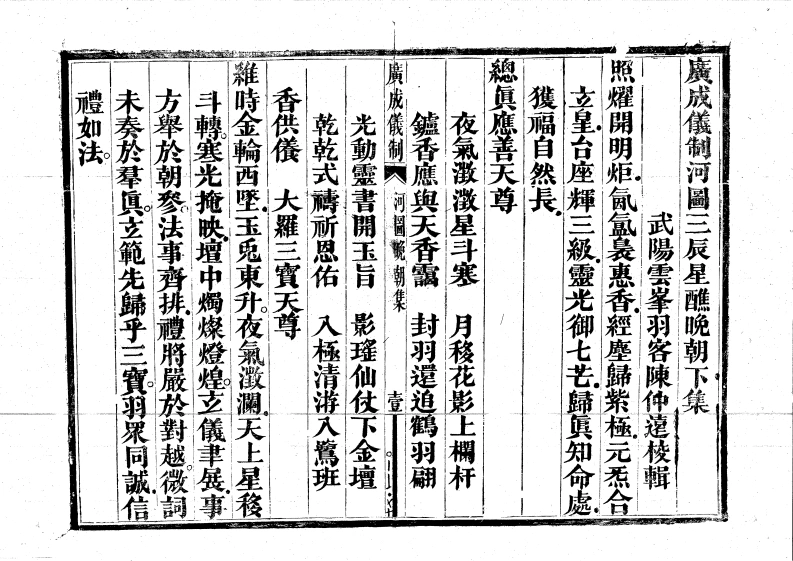 廣成儀制河圖三辰星醮晚朝下集
武陽雲峯羽客陳仲遠校輯
照燿開明炬氤氳裊惠香經塵歸紫極元炁合
玄皇台座輝三級靈光御七芒歸眞知命處
獲福自然長
總眞應善天尊
夜氣澂澂星斗寒　月移花影上欄杆
鑪香應與天香靄　封羽還追鶴羽翩
廣成儀制　河圖晚朝集　壹
光動靈書開玉旨　影瑤仙仗下金壇
乾乾式禱祈恩佑　入極清游入鷺班
香供儀　大羅三寶天尊
維時金輪西墜玉兎東升夜氣澂瀾天上星移
斗轉寒光掩映壇中燭燦燈煌玄儀聿展事
方舉於朝叅法事齊排禮將嚴於對越微詞
未奏於羣眞玄範先歸乎三寶羽眾同誠信
禮如法